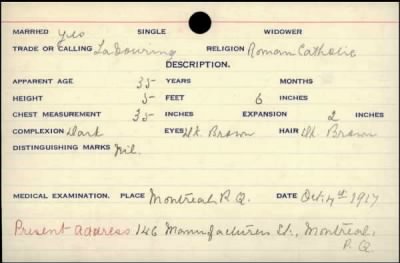 MARRIED Yes SINGLE WIDOWER
TRADE OR CALLING Labouring RELIGION Roman Catholic
DESCRIPTION.
APPARENT AGE 35 YEARS MONTHS
HEIGHT 5 FEET 6 INCHES
CHEST MEASUREMENT 35 INCHES EXPANSION 2 INCHES
COMPLEXION Dark EYES Dk. Brown HAIR Dk. Brown
DISTINGUISHING MARKS Nil.
MEDICAL EXAMINATION. PLACE Montreal, P.Q. DATE Oct. 4th 1917
Present address 146 Manufacturers St., Montreal,
P.Q.